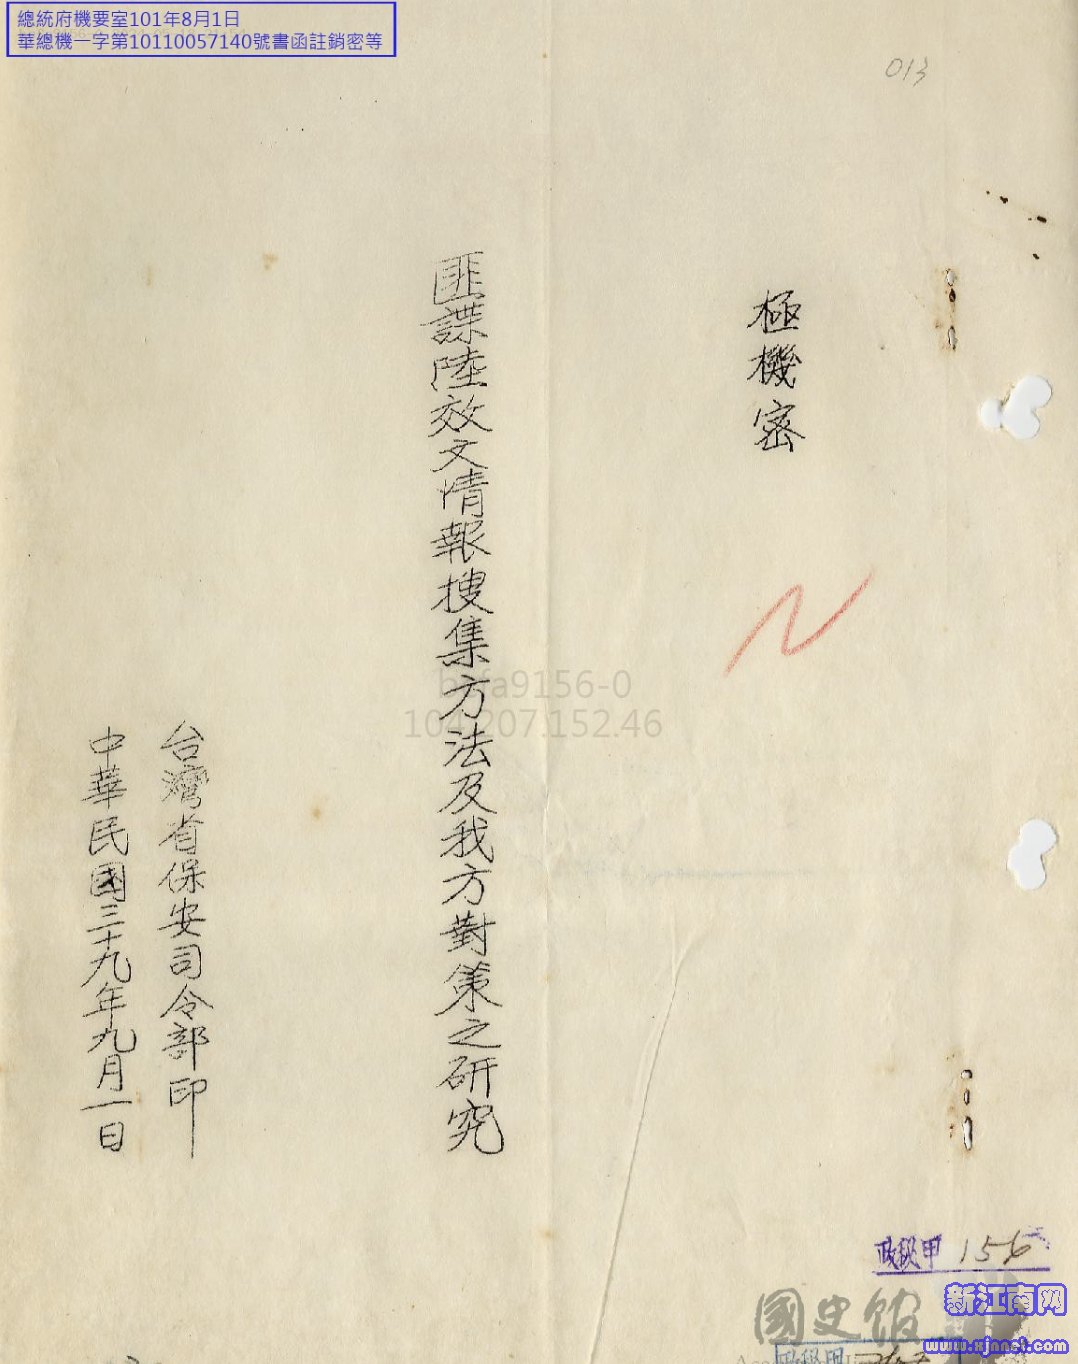 總統府機要室101年8月1日
華總機一字第10110057140號書函註銷密等
013
極機密
匪諜陸效文情報搜集方法及我方對策之研究
台灣省保安司令部印
中華民國三十九年九月一日
a9156-0
104.207.152.46
156
國史館
新江南网
www.xjnnet.com